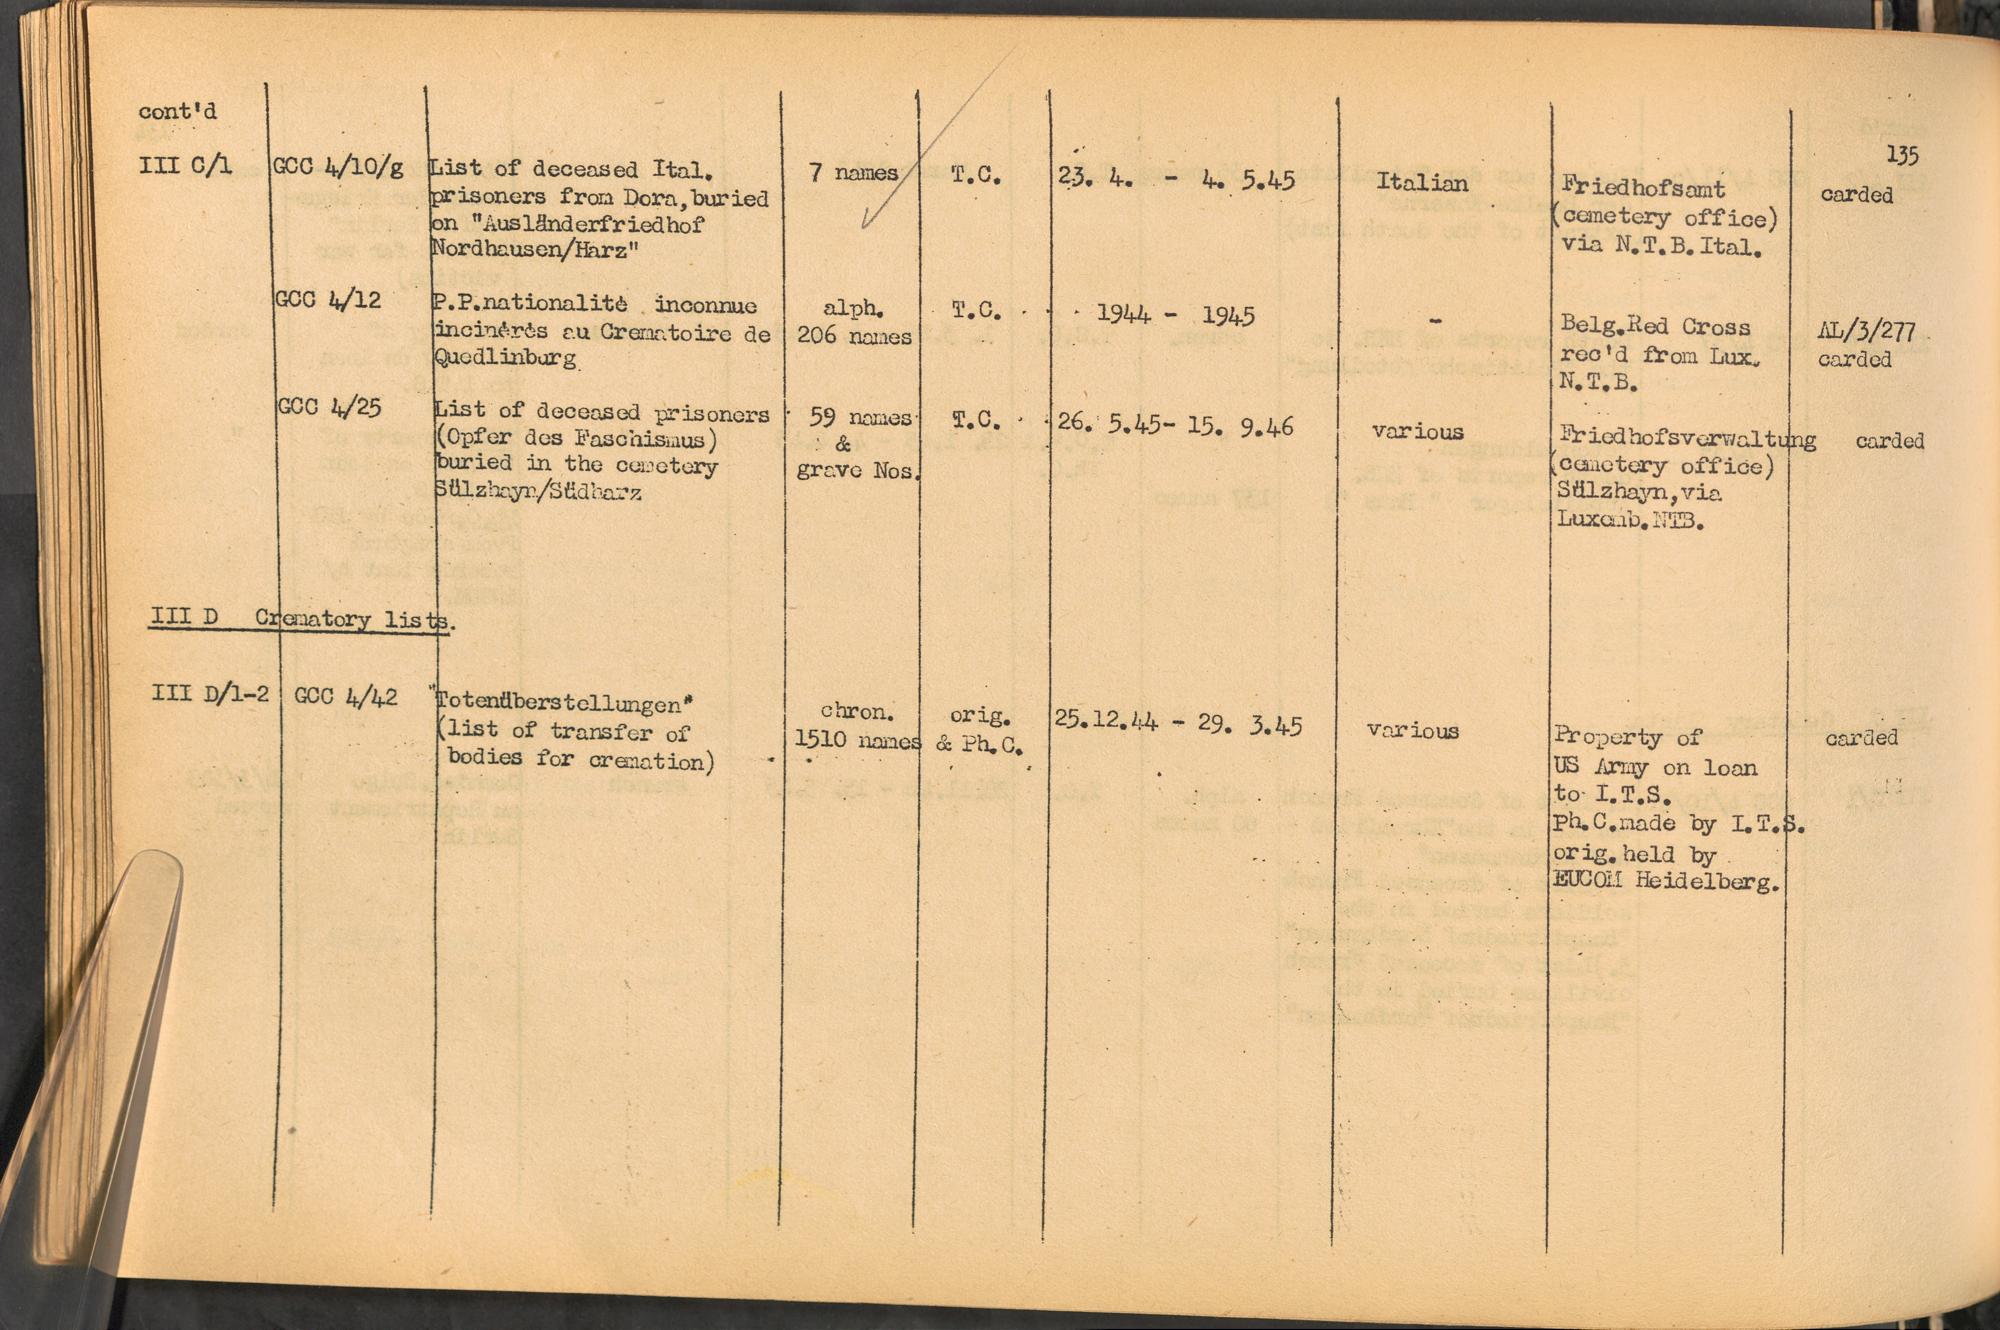 cont'd
135
III C/1 GCC 4/10/g List of deceased Ital. 7 names T.C. 23. 4. - 4. 5.45 Italian Friedhofsamt carded
prisoners from Dora,buried (cemetery office)
on "Ausländerfriedhof via N.T.B.Ital.
Nordhausen/Harz"
GCC 4/12 P.P.nationalité inconnue alph. T.C. 1944 - 1945 - Belg.Red Cross AL/3/277
incinérés au Crematoire de 206 names rec'd from Lux. carded
Quedlinburg N.T.B.
GCC 4/25 List of deceased prisoners 59 names T.C. 26. 5.45- 15. 9.46 various Friedhofsverwaltung carded
(Opfer des Faschismus) & (cemetery office)
buried in the cemetery grave Nos. Sülzhayn,via
Sülzhayn/Südharz Luxemb.NTB.
III D Crematory lists.
III D/1-2 GCC 4/42 "Totenüberstellungen" chron. orig. 25.12.44 - 29. 3.45 various Property of carded
(list of transfer of 1510 names & Ph.C. US Army on loan
bodies for cremation) to I.T.S.
Ph.C.made by I.T.S.
orig.held by
EUCOM Heidelberg.